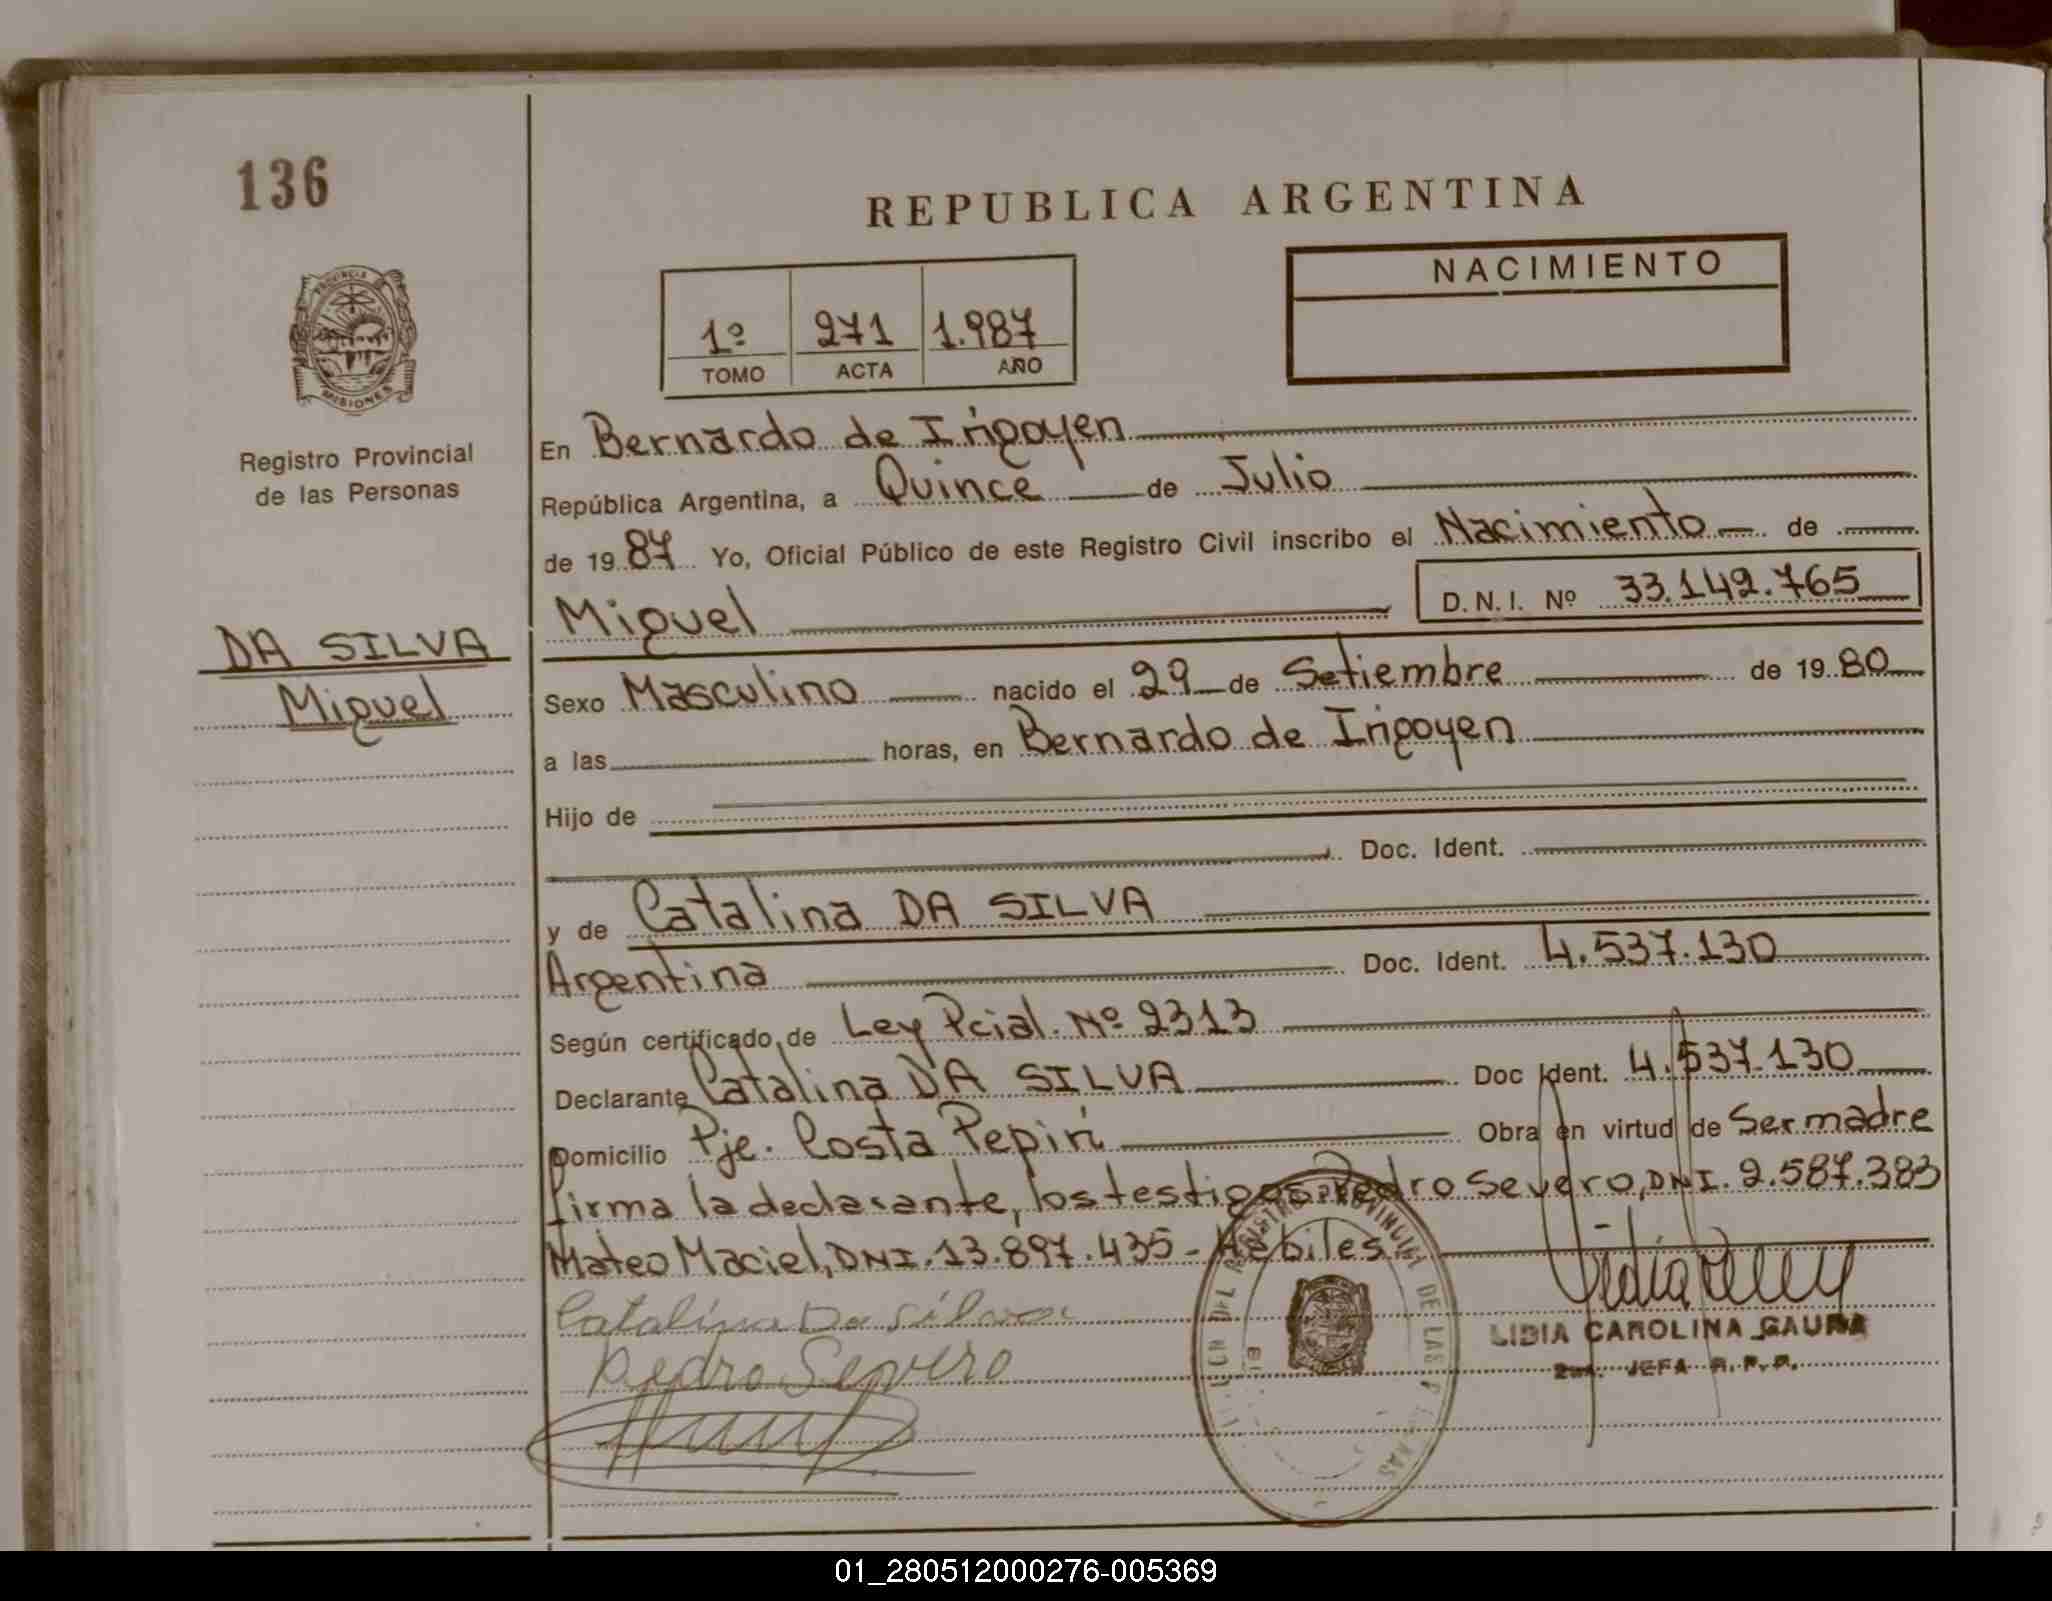 136
REPUBLICA ARGENTINA
NACIMIENTO
1º 271 1.987
TOMO ACTA AÑO
PROVINCIA
MISIONES
Registro Provincial
de las Personas
DA SILVA
Miguel
En Bernardo de Irigoyen
República Argentina, a Quince de Julio
de 19 87 Yo, Oficial Público de este Registro Civil inscribo el Nacimiento de
Miguel D.N.I. Nº 33.142.765
Sexo Masculino nacido el 29 de Setiembre de 19 80
a las horas, en Bernardo de Irigoyen
Hijo de
Doc. Ident.
y de Catalina DA SILVA
Argentina Doc. Ident. 4.537.130
Según certificado de Ley Pcial. Nº 2313
Declarante Catalina DA SILVA Doc Ident. 4.537.130
Domicilio Pje. Costa Pepirí Obra en virtud de Ser madre
firma la declarante, los testigos: Pedro Severo, DNI. 2.587.383
Mateo Maciel, DNI. 13.897.435 - Hábiles
Catalina Da Silva
Pedro Severo
REGISTRO PROVINCIAL DE LAS
LIDIA CAROLINA GAUNA
JEFA R.P.P.
01_280512000276-005369